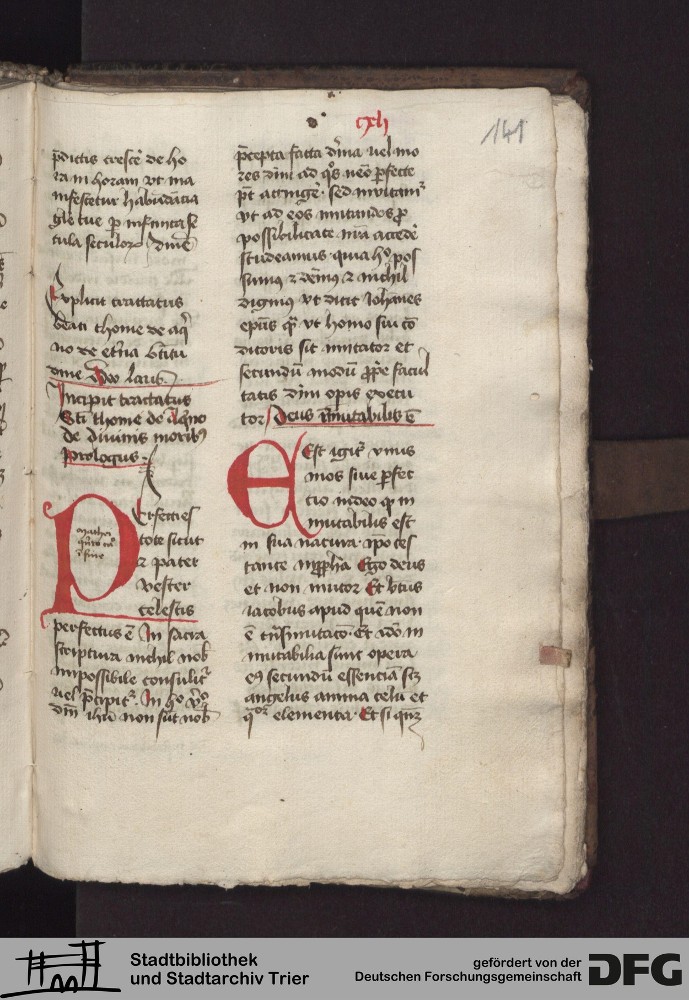 cxli
141
p̄dictis cresce᷑ de ho
ra in horam vt ma
nifestetur habūdācia
gl̄e tue p̲ infinita se
cula seculoꝝ Amē
Explicit tractatus
beati thome de aq̄
no de et̄na btītu
dine Deo laus
Incipit tractatus
Sc̄i thome de Aq̄no
de diuinis moribꝰ
Prologus
PErfecti es
tote sicut
⁊ pater
vester
celestis
mathei
qu̅to
ī fine
perfectus ē In sacra
scriptura nichil nob̄
impossibile consulit᷑
uel p̄cipit᷑ In hoc
dn̄i ih̄u non sūt nob̄
p̄cepta facta dīna uel mo
res dīni ad qͦs neō p̲fecte
pt̄ attinge᷑ sed inuitam᷑
vt ad eos imitandos ꝓ
possibilitate nr̄a accede᷑
studeamus quia hͦ pos
sumꝰ ⁊ debemꝰ ⁊ nichil
dignius vt dicit Iohanes
ep̄us qͣ vt homo sui cō
ditoris sit imitator et
secundū modū ꝓpͥe facul
tatis dīni opis execu
tor Deus īmutabilis ē
ESt igit᷑ vnus
mos siue p̲fec
tio in deo qꝫ in
mutabilis est
in sua natura ip̄o tes
tante in ꝓph̄a Ego deus
et non mutor Et btūs
iacobus apud quē non
ē trāsmutatō Et ideo in
mutabilia sunt opera
eiꝰ secundū essenciā scꝫ
angelus anima celū et
qͣtuor elementa Et si
Stadtbibliothek
und Stadtarchiv Trier
gefördert von der
Deutschen Forschungsgemeinschaft
DFG